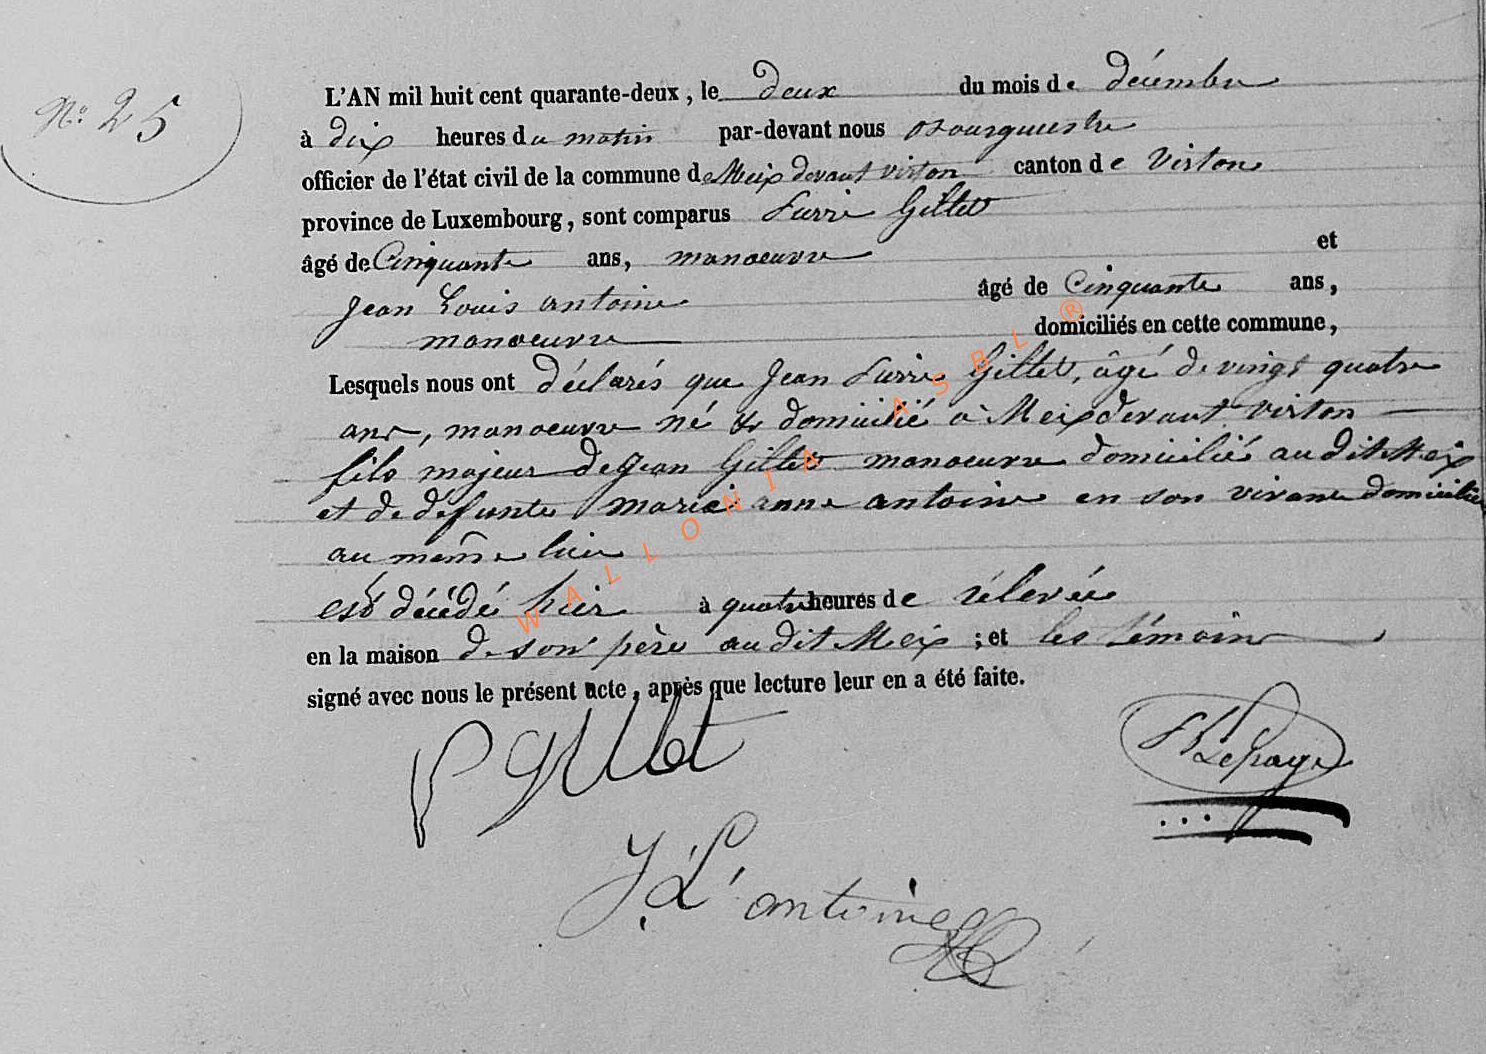 No. 25
L'AN mil huit cent quarante-deux, le deux du mois de décembre
à dix heures du matin par-devant nous Bourguestre
officier de l'état civil de la commune de Meix devant virton canton de Virton
province de Luxembourg, sont comparus Pierre Gillet
âgé de Cinquante ans, manoeuvre et
Jean Louis antoine âgé de Cinquante ans,
manoeuvre domiciliés en cette commune,
Lesquels nous ont déclarés que Jean Pierre Gillet, âgé de vingt quatre
ans, manoeuvre né & domicilié à Meix devant virton
fils majeur de Jean Gillet manoeuvre domicilié audit Meix
et de défunte marie anne antoine en son vivant domiciliée
au même lieu
est décédé hier à quatre heures de rélevée
en la maison de son père audit Meix ; et les témoins
signé avec nous le présent acte, après que lecture leur en a été faite.
P Gillet
Lepage
J. L. antoine
WALLONIA ASBL ®